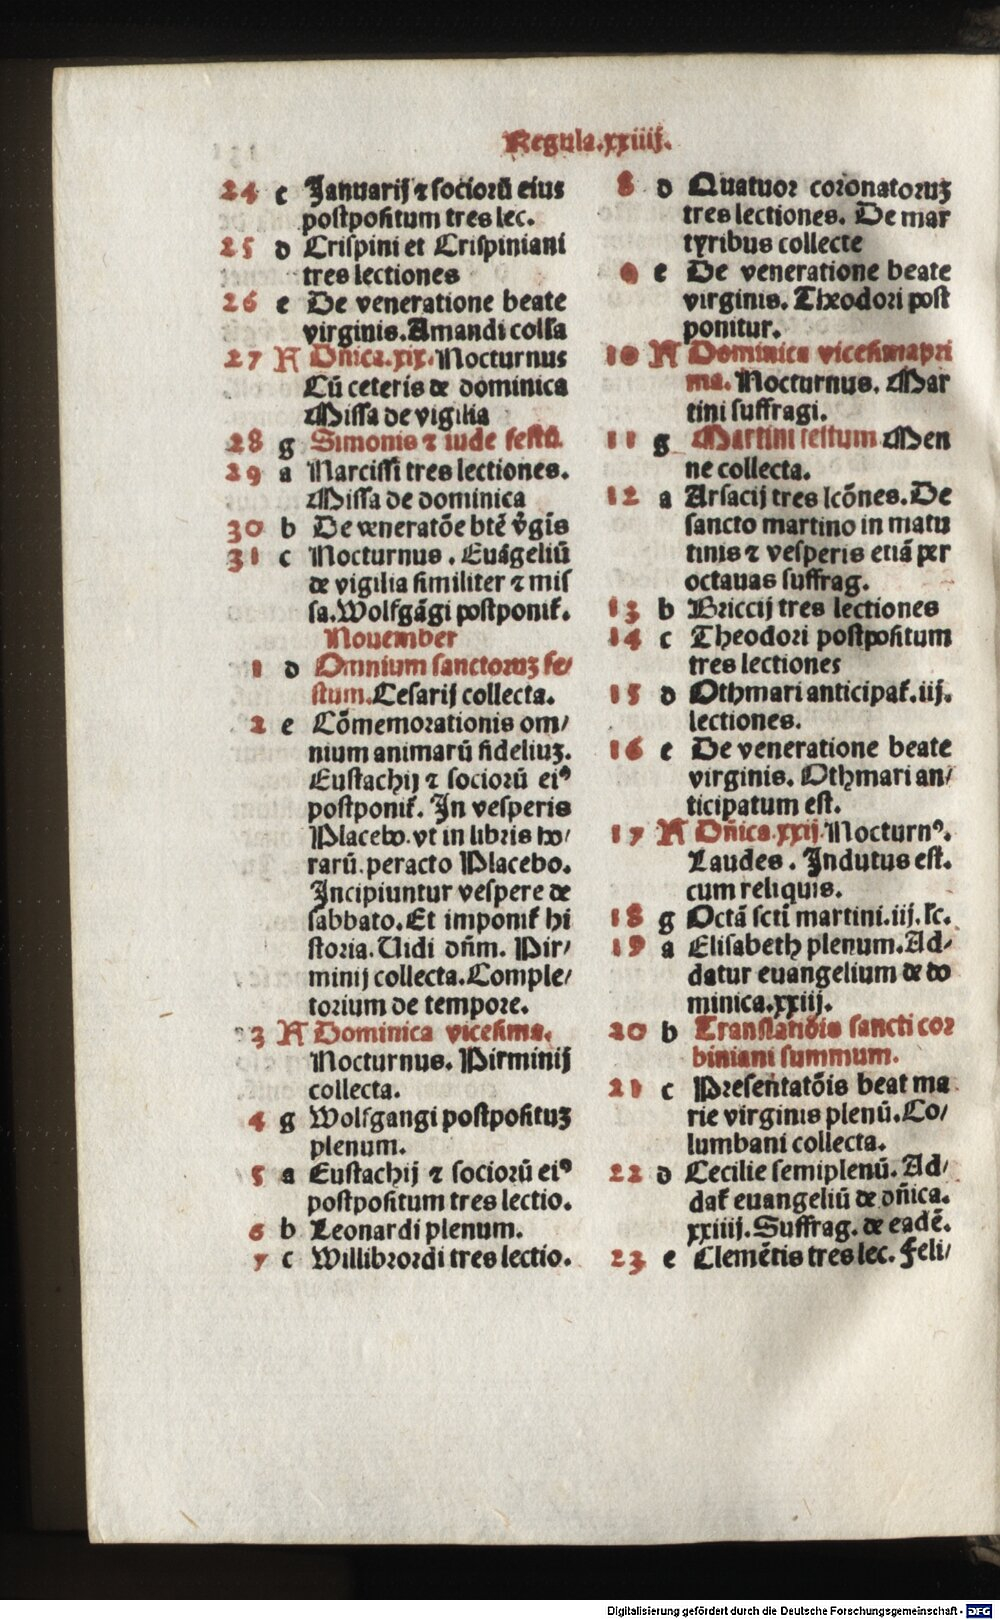 Regula.xxiiij.
24 c Januarij ⁊ sociorū eius
postpositum tres lec.
25 d Crispini et Crispiniani
tres lectiones
26 e De veneratione beate
virginis. Amandi coll̄a
27 A Dn̄ica.xix. Nocturnus
Cū ceteris de dominica
Missa de vigilia
28 g Simonis ⁊ iude festū.
29 a Narcissi tres lectiones.
Missa de dominica
30 b De veneratōe btē v̄gīs
31 c Nocturnus. Euāgeliū
de vigilia similiter ⁊ mis
sa. Wolfgāgi postponit̄.
Nouember
1 d Omnium sanctoruꝫ fe/
stum. Cesarij collecta.
2 e Cōmemorationis om/
nium animarū fideliuꝫ.
Eustachij ⁊ sociorū eiꝰ
postponit̄. In vesperis
Placebo. vt in libris ho/
rarū. peracto Placebo.
Incipiuntur vespere de
sabbato. Et imponit̄ hi
storia. Uidi dn̄m. Pir/
minij collecta. Comple/
torium de tempore.
3 A Dominica vicesima.
Nocturnus. Pirminij
collecta.
4 g Wolfgangi postposituꝫ
plenum.
5 a Eustachij ⁊ sociorū eiꝰ
postpositum tres lectio.
6 b Leonardi plenum.
7 c Willibrordi tres lectio.
8 d Quatuor coronatoruꝫ
tres lectiones. De mar
tyribus collecte
9 e De veneratione beate
virginis. Theodori post
ponitur.
10 A Dominica vicesimapri
ma. Nocturnus. Mar
tini suffragi.
11 g Martini festum Men
ne collecta.
12 a Arsacij tres lcōnes. De
sancto martino in matu
tinis ⁊ vesperis etiā per
octauas suffrag.
13 b Briccij tres lectiones
14 c Theodori postpositum
tres lectiones
15 d Othmari anticipat̄.iij.
lectiones.
16 e De veneratione beate
virginis. Othmari an/
ticipatum est.
17 A Dn̄ica.xxij. Nocturnꝰ.
Laudes. Indutus est.
cum reliquis.
18 g Octā scti martini.iij.lc̄.
19 a Elisabeth plenum. Ad/
datur euangelium de do
minica.xxiij.
20 b Translatiōis sancti cor
biniani summum.
21 c Presentatōis beat ma
rie virginis plenū. Co/
lumbani collecta.
22 d Cecilie semiplenū. Ad/
dat̄ euangeliū de dn̄ica.
xxiiij. Suffrag. de eadē.
23 e Clemētis tres lec. Feli/
Digitalisierung gefördert durch die Deutsche Forschungsgemeinschaft - DFG